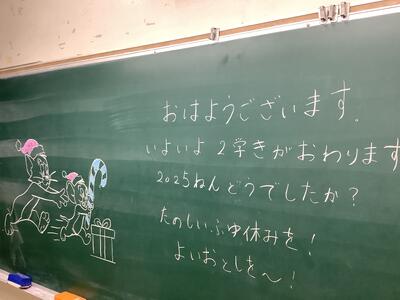 おはようございます。
いよいよ2学きがおわります
2025ねんどうでしたか？
たのしいふゆ休みを！
よいおとしを〜！